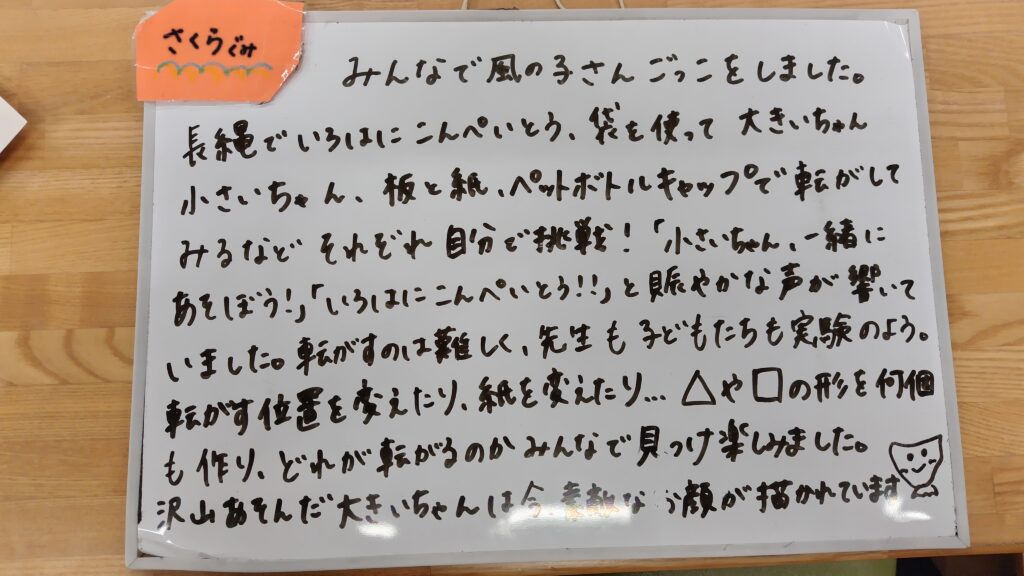 さくらぐみ
みんなで風の子さんごっこをしました。
長縄でいろはにこんぺいとう、袋を使って大きいちゃん
小さいちゃん、板と紙、ペットボトルキャップで転がして
みるなどそれぞれ自分で挑戦!「小さいちゃん、一緒に
あそぼう!」「いろはにこんぺいとう!!」と賑やかな声が響いて
いました。転がすのは難しく、先生も子どもたちも実験のよう。
転がす位置を変えたり、紙を変えたり…△や□の形を何個
も作り、どれが転がるのかみんなで見つけ楽しみました。
沢山あそんだ大きいちゃんは今、素敵なお顔が描かれています